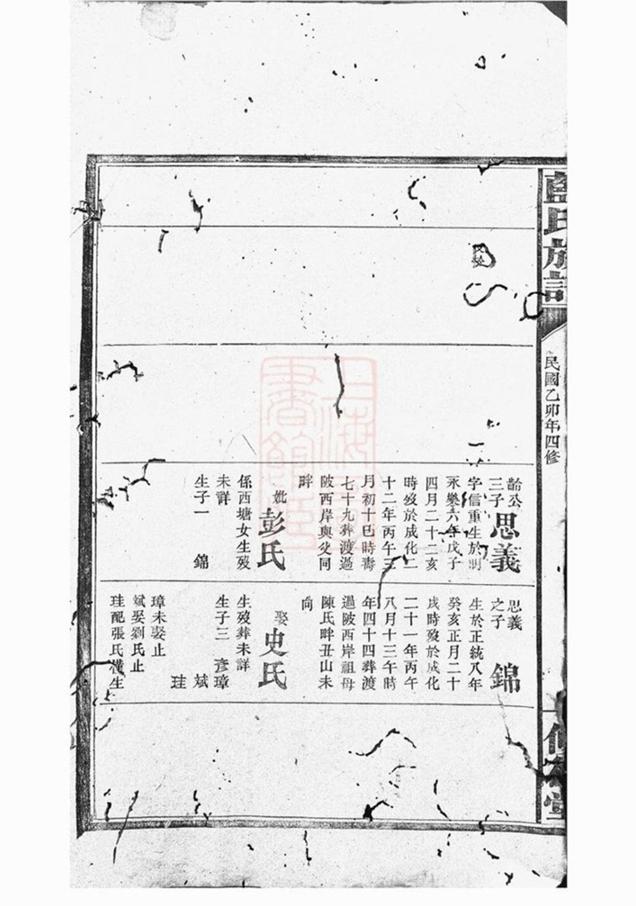 藍氏族譜
民國乙卯年四修
齡公
三子
思義
字信重生於明
永樂六年戊子
四月二十二亥
時歿於成化二
十二年丙午三
月初十巳時壽
七十九葬渡過
陂西岸與父同
畔
妣
彭氏
係西塘女生歿
未詳
生子一 錦
思義
之子
錦
生於正統八年
癸亥正月二十
戌時歿於成化
二十一年丙午
八月十三午時
年四十四葬渡
過陂西岸祖母
陳氏畔丑山未
向
娶
史氏
生歿葬未詳
生子三 彥璋
斌
珪
璋未娶止
斌娶劉氏止
珪配張氏
生
上海圖書館藏